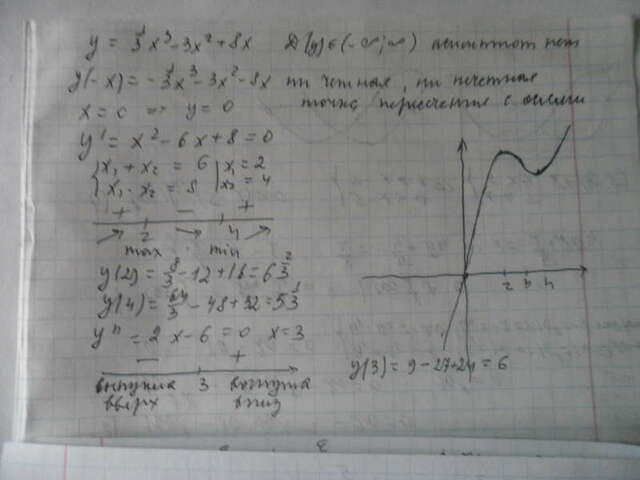 y = 1/3 x³ - 3x² + 8x D(y) ∈ (-∞; ∞) асимптот нет
y(-x) = -1/3 x³ - 3x² - 8x ни четная, ни нечетная
x = 0 => y = 0 точка пересечения с осями
y' = x² - 6x + 8 = 0
{ x₁ + x₂ = 6 | x₁ = 2
x₁ · x₂ = 8 | x₂ = 4
+ - +
2 4
max min
y(2) = 8/3 - 12 + 16 = 6 2/3
y(4) = 64/3 - 48 + 32 = 5 1/3
y" = 2x - 6 = 0 x = 3
- +
3
выпукла вогнута
вверх вниз
2 4
y(3) = 9 - 27 + 24 = 6